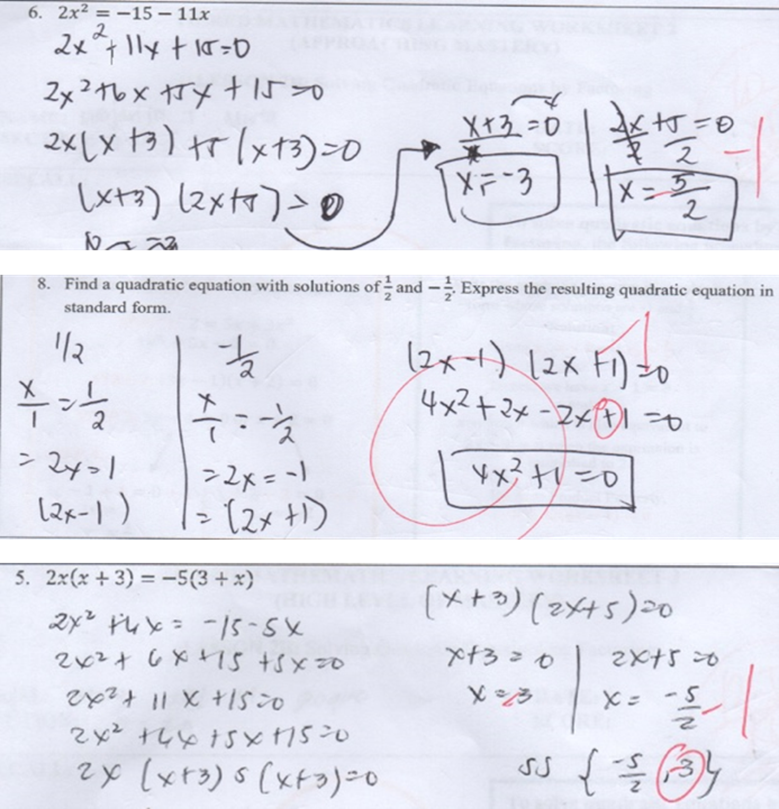 6. 2x² = −15 − 11x
2x² + 11x + 15 = 0
2x² + 6x + 5x + 15 = 0
2x(x+3) + 5(x+3) = 0
(x+3) (2x+5) = 0
x+3 = 0
x = -3
2x/2 + 5/2 = 0
x = 5/2
-1
8. Find a quadratic equation with solutions of 1/2 and −1/2. Express the resulting quadratic equation in
standard form.
1/2
x/1 = 1/2
= 2x = 1
(2x-1)
-1/2
x/1 = -1/2
= 2x = -1
= (2x+1)
(2x-1) (2x+1) = 0
4x² + 2x - 2x + 1 = 0
4x² + 1 = 0
5. 2x(x + 3) = −5(3 + x)
2x² + 6x = -15-5x
2x² + 6x + 15 + 5x = 0
2x² + 11x + 15 = 0
2x² + 6x + 5x + 15 = 0
2x (x+3) 5 (x+3) = 0
(x+3) (2x+5) = 0
x+3 = 0
x = 3
2x+5 = 0
x = -5/2
-1
SS { -5/2 , 3 }